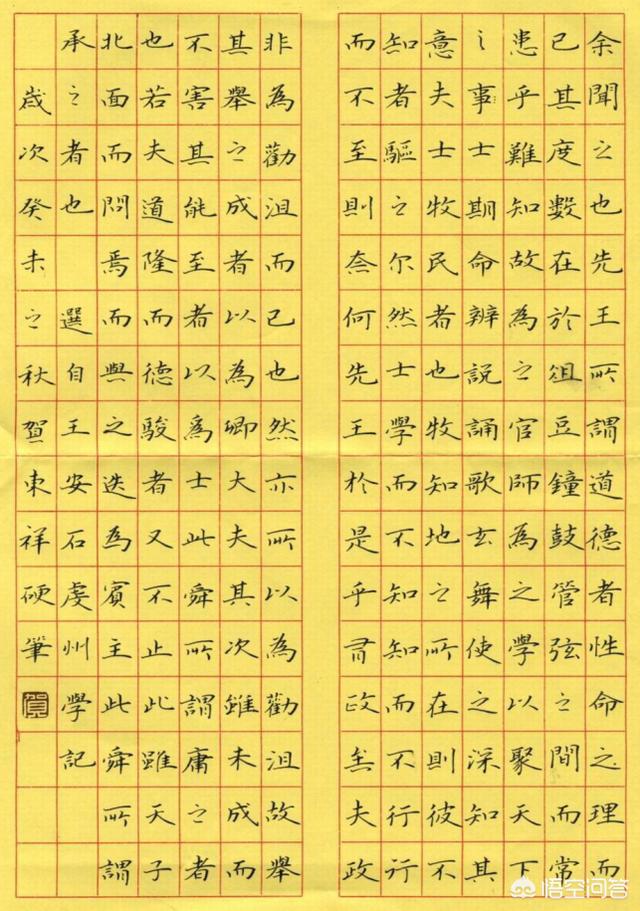 余聞之也先王所謂道德者性命之理而
已其度數在於俎豆鐘鼓管弦之間而常
患乎難知故為之官師為之學以聚天下
之事士期命辨説誦歌玄舞使之深知其
意夫士牧民者也牧知地之所在則彼不
知者驅之尔然士學而不知知而不行行
而不至則奈何先王於是乎有政矣夫政
非為勸沮而已也然亦所以為勸沮故舉
其舉之成者以為卿大夫其次雖未成而
不害其能至者以為士此舜所謂庸之者
也若夫道隆而德駿者又不止此雖天子
北面而問焉而與之迭為賓主此舜所謂
承之者也 選自王安石虔州學記
歲次癸未之秋賀東祥硬筆
賀
悟空问答